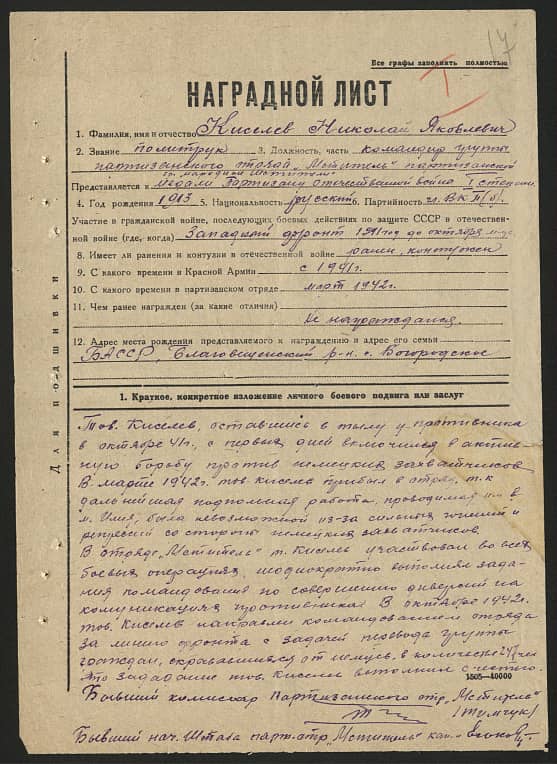 17
Все графы заполнять полностью
НАГРАДНОЙ ЛИСТ
1. Фамилия, имя и отчество Киселев Николай Яковлевич
2. Звание политрук 3. Должность, часть командир группы
партизанского отряда "Мститель" партизанской
бр. народные мстители
Представляется к медали Партизану отечественной войны I степени
4. Год рождения 1913 5. Национальность русский 6. Партийность чл. ВКП(б).
Участие в гражданской войне, последующих боевых действиях по защите СССР в отечествен-
ной войне (где, когда) Западный фронт 1941 год до октября м-ца
8. Имеет ли ранения и контузии в отечественной войне ранен, контужен
9. С какого времени в Красной Армии с 1941г.
10. С какого времени в партизанском отряде март 1942г.
11. Чем ранее награжден (за какие отличия)
Не награждался.
12. Адрес места рождения представляемого к награждению и адрес его семьи
БАССР, Благовещенский р-н. с. Богородское
Для подшивки
1. Краткое, конкретное изложение личного боевого подвига или заслуг
Тов. Киселев, оставшись в тылу у противника
в октябре 41г. с первых дней включился в актив-
ную борьбу против немецких захватчиков.
В марте 1942г. тов. Киселев прибыл в отряд, т.к
дальнейшая подпольная работа, проводимая им в
м. Илия, была невозможной из-за сильных гонений и
репрессий со стороны немецких захватчиков.
В отряде "Мститель" т. Киселев участвовал во всех
боевых операциях, неоднократно выполнял зада-
ния командования по совершению диверсий на
коммуникациях противника. В октябре 1942г.
тов. Киселев направлен командованием отряда
за линию фронта с задачей перевода группы
граждан, скрывавшихся от немцев, в количестве 247 чел
Это задание тов. Киселев выполнил с честью.
1505—10000
Бывший комиссар Партизанского отр. "Мститель"
/Тимчук/
Бывший нач. Штаба парт. отр. "Мститель" кап.